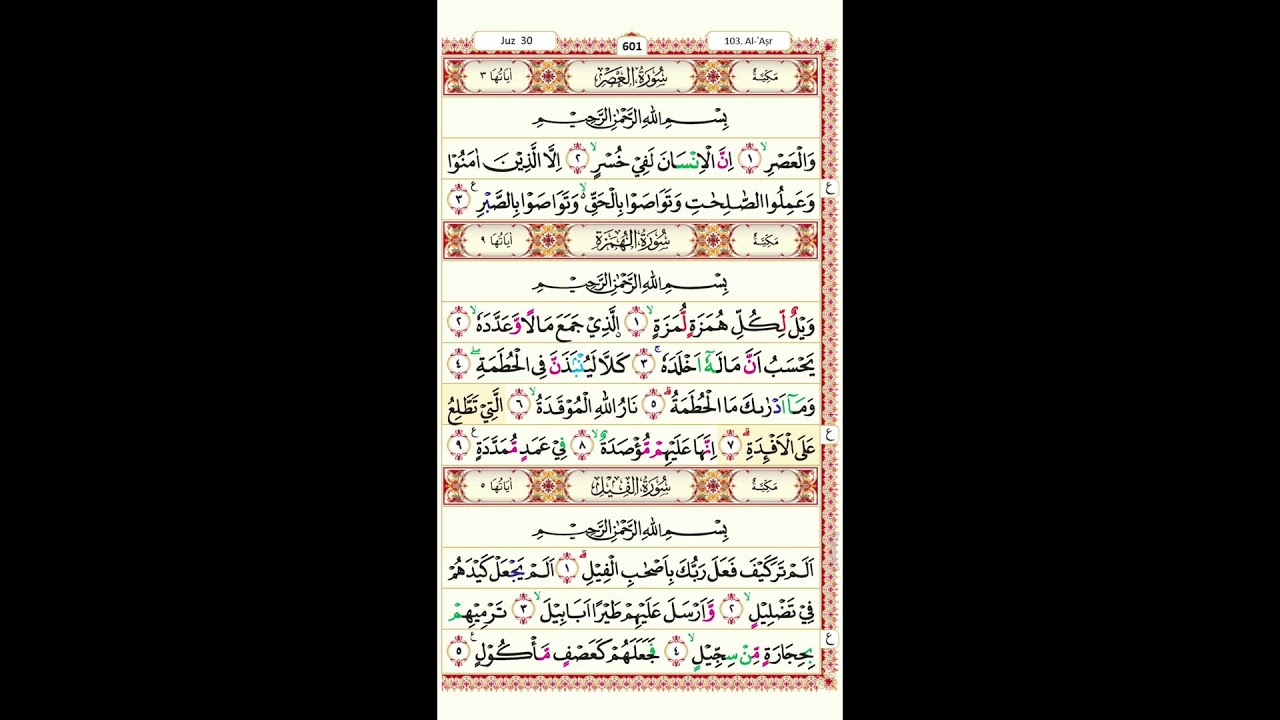 Juz 30
601
103. Al-'Aṣr
مَكِّيَّةٌ سُوْرَةُ الْعَصْرِ اٰيَاتُهَا ٣
بِسْمِ اللّٰهِ الرَّحْمٰنِ الرَّحِيْمِ
وَالْعَصْرِۙ ١ اِنَّ الْاِنْسَانَ لَفِيْ خُسْرٍۙ ٢ اِلَّا الَّذِيْنَ اٰمَنُوْا
وَعَمِلُوا الصّٰلِحٰتِ وَتَوَاصَوْا بِالْحَقِّ ەۙ وَتَوَاصَوْا بِالصَّبْرِ ࣖ ٣
ع
مَكِّيَّةٌ سُوْرَةُ الْهُمَزَةِ اٰيَاتُهَا ٩
بِسْمِ اللّٰهِ الرَّحْمٰنِ الرَّحِيْمِ
وَيْلٌ لِّكُلِّ هُمَزَةٍ لُّمَزَةٍۙ ١ ۨالَّذِيْ جَمَعَ مَالًا وَّعَدَّدَهٗۙ ٢
يَحْسَبُ اَنَّ مَالَهٗٓ اَخْلَدَهٗۚ ٣ كَلَّا لَيُنْۢبَذَنَّ فِى الْحُطَمَةِۖ ٤
وَمَآ اَدْرٰىكَ مَا الْحُطَمَةُ ۗ ٥ نَارُ اللّٰهِ الْمُوْقَدَةُۙ ٦ الَّتِيْ تَطَّلِعُ
عَلَى الْاَفْـِٕدَةِۗ ٧ اِنَّهَا عَلَيْهِمْ مُّؤْصَدَةٌۙ ٨ فِيْ عَمَدٍ مُّمَدَّدَةٍ ࣖ ٩
ع
مَكِّيَّةٌ سُوْرَةُ الْفِيْلِ اٰيَاتُهَا ٥
بِسْمِ اللّٰهِ الرَّحْمٰنِ الرَّحِيْمِ
اَلَمْ تَرَ كَيْفَ فَعَلَ رَبُّكَ بِاَصْحٰبِ الْفِيْلِۗ ١ اَلَمْ يَجْعَلْ كَيْدَهُمْ
فِيْ تَضْلِيْلٍۙ ٢ وَّاَرْسَلَ عَلَيْهِمْ طَيْرًا اَبَابِيْلَۙ ٣ تَرْمِيْهِمْ
بِحِجَارَةٍ مِّنْ سِجِّيْلٍۙ ٤ فَجَعَلَهُمْ كَعَصْفٍ مَّأْكُوْلٍ ࣖ ٥
ع